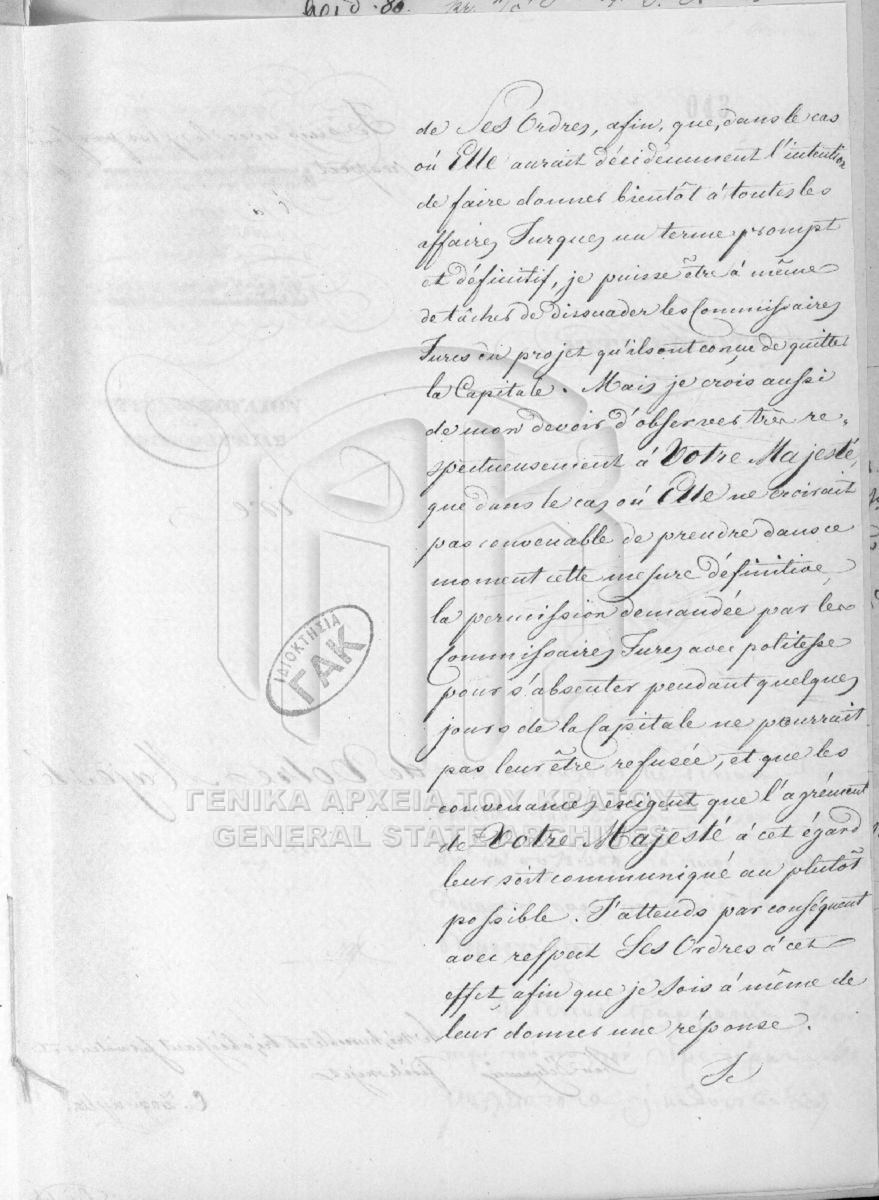 de Ses Ordres, afin, que, dans le cas
où Elle aurait décidemment l'intention
de faire donner bientôt à toutes les
affaires Turques un terme prompt
et définitif, je puisse être à même
de tâcher de dissuader les Commissaires
Turcs du projet qu'ils ont conçu de quitter
la Capitale. Mais je crois aussi
de mon devoir d'observer très re-
spectueusement à Votre Majesté,
que dans le cas où Elle ne croirait
pas convenable de prendre dans ce
moment cette mesure définitive,
la permission demandée par les
Commissaires Turcs avec politesse
pour s'absenter pendant quelques
jours de la Capitale ne pourrait
pas leur être refusée, et que les
convenances exigent que l'agrément
de Votre Majesté à cet égard
leur soit communiqué au plutôt
possible. J'attends par conséquent
avec respect Ses Ordres à cet
effet, afin que je sois à même de
leur donner une réponse.
Je
ΙΔΙΟΚΤΗΣΙΑ
ΓΑΚ
ΓΕΝΙΚΑ ΑΡΧΕΙΑ ΤΟΥ ΚΡΑΤΟΥΣ
GENERAL STATE ARCHIVES